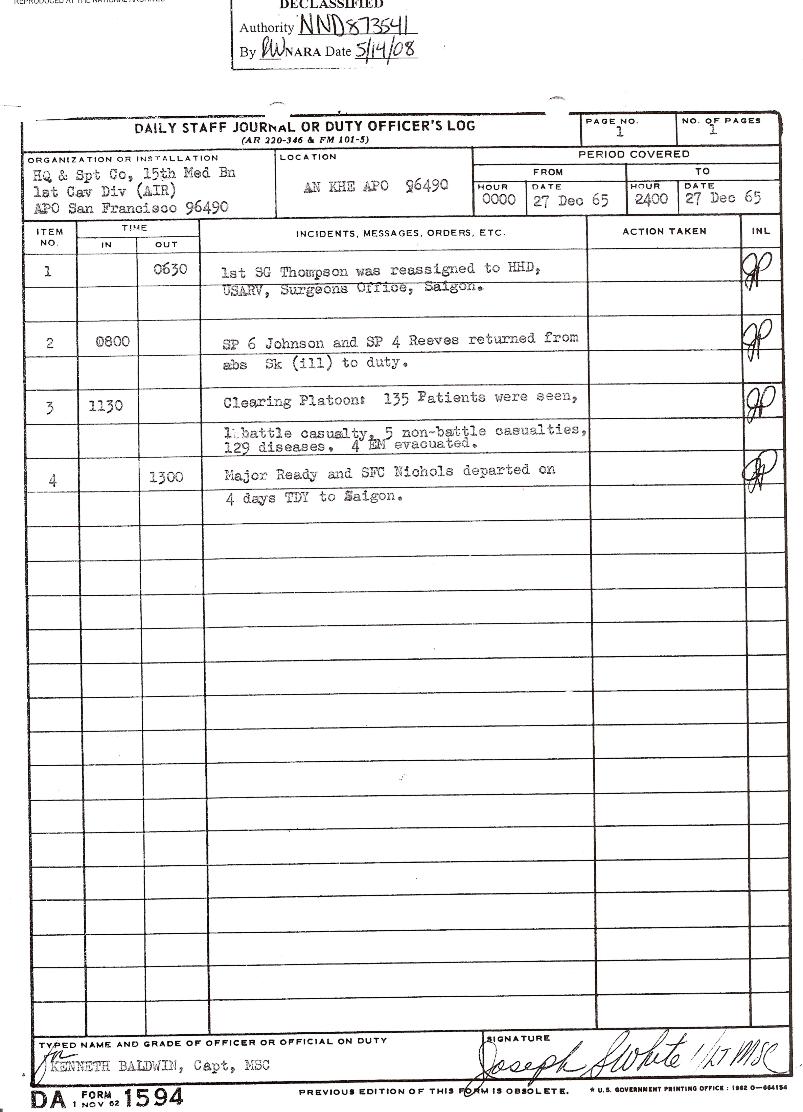 DECLASSIFIED
Authority NND873541
By NARA Date 5/14/08
DAILY STAFF JOURNAL OR DUTY OFFICER'S LOG
(AR 220-346 & FM 101-5)
PAGE NO.
1
NO. OF PAGES
1
ORGANIZATION OR INSTALLATION
HQ & Spt Co, 15th Med Bn
1st Cav Div (AIR)
APO San Francisco 96490
LOCATION
AN KHE APO 96490
PERIOD COVERED
FROM
TO
HOUR
0000
DATE
27 Dec 65
HOUR
2400
DATE
27 Dec 65
ITEM NO.
TIME
IN
OUT
INCIDENTS, MESSAGES, ORDERS, ETC.
ACTION TAKEN
INL
1 0630 1st SG Thompson was reassigned to HHD,
USARV, Surgeons Office, Saigon.
2 0800 SP 6 Johnson and SP 4 Reeves returned from
abs Sk (ill) to duty.
3 1130 Clearing Platoon: 135 Patients were seen,
1 battle casualty, 5 non-battle casualties,
129 diseases. 4 EM evacuated.
4 1300 Major Ready and SFC Nichols departed on
4 days TDY to Saigon.
TYPED NAME AND GRADE OF OFFICER OR OFFICIAL ON DUTY
for
KENNETH BALDWIN, Capt, MSC
SIGNATURE
Joseph S White 1/LT MSC
DA FORM 1 NOV 62 1594
PREVIOUS EDITION OF THIS FORM IS OBSOLETE.
* U.S. GOVERNMENT PRINTING OFFICE : 1962 O—664154